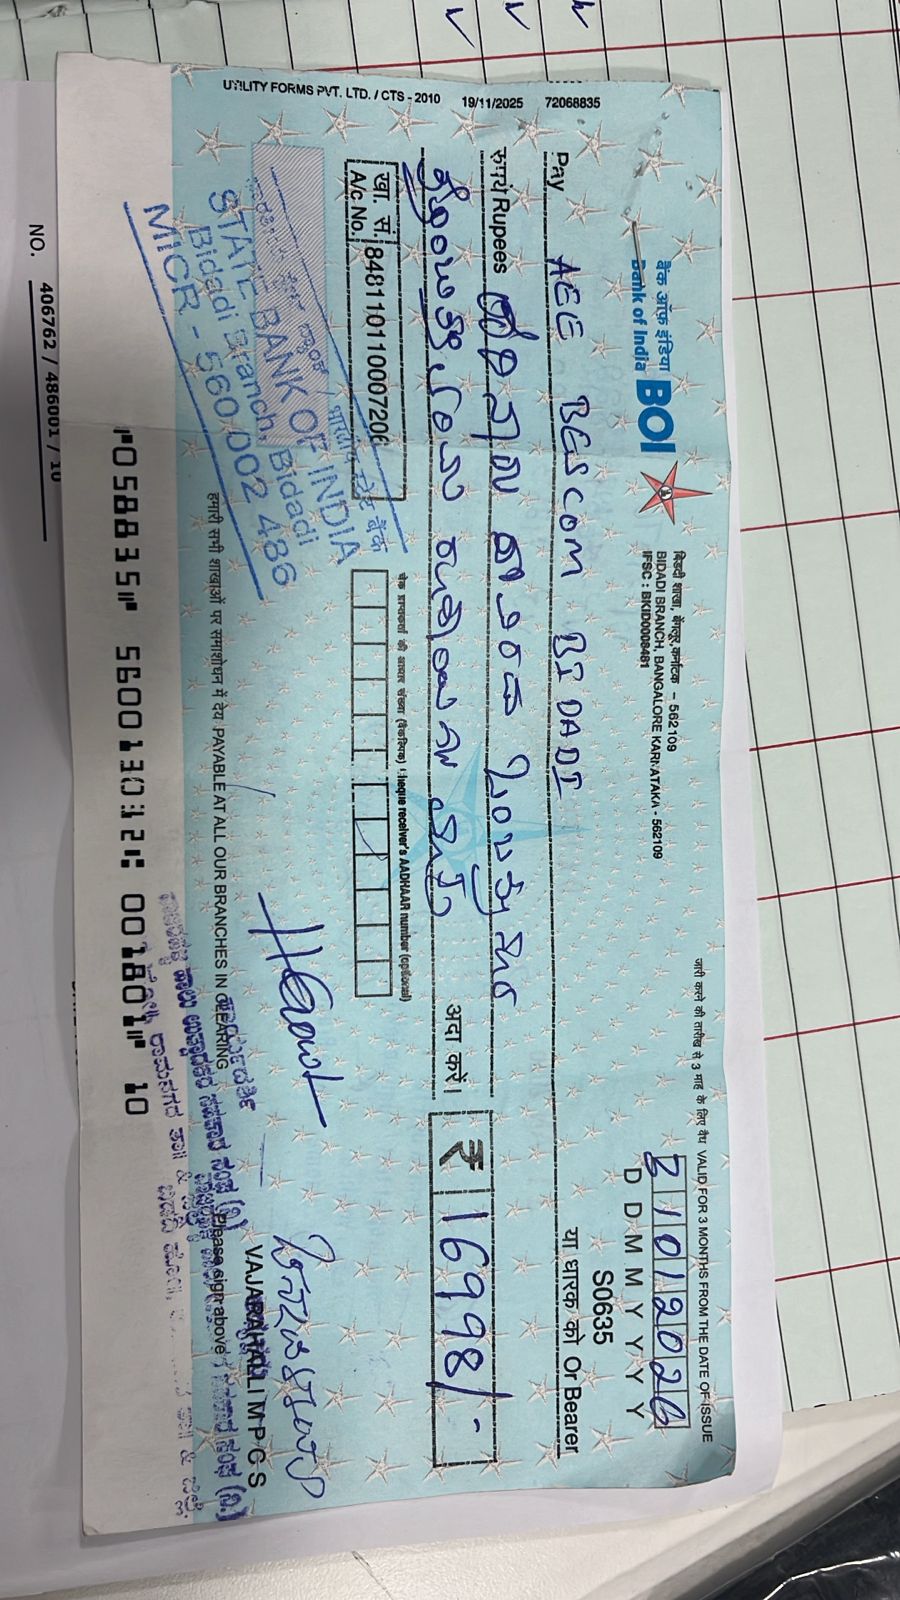 UTILITY FORMS PVT. LTD. / CTS - 2010 19/11/2025 72068835
बैंक ऑफ़ इंडिया
Bank of India
BOI
बिडदी शाखा, बेंगलूर कर्नाटक – 562109
BIDADI BRANCH, BANGALORE KARNATAKA - 562109
IFSC : BKID0008481
जारी करने की तारीख से 3 माह के लिए वैध VALID FOR 3 MONTHS FROM THE DATE OF ISSUE
21012026
D D M M Y Y Y Y
S0635
Pay AEE BESCOM BIDADI
या धारक को Or Bearer
रुपये Rupees ಹದಿನಾರು ಸಾವಿರದ ಒಂಬೈನೂರ
ತೊಂಬತ್ತೆಂಟು ರೂಪಾಯಿ ಮಾತ್ರ
अदा करें।
₹ 16998/-
खा. सं.
A/c No.
848110110007206
चेक प्राप्तकर्ता की आधार संख्या (वैकल्पिक) Cheque receiver's AADHAAR number (optional)
भारतीय स्टेट बैंक
STATE BANK OF INDIA
Bidadi Branch, Bidadi
MICR - 560 002 486
VAJARAHALLI M P C S
Please sign above
हमारी सभी शाखाओं पर समाशोधन में देय PAYABLE AT ALL OUR BRANCHES IN CLEARING
⑈058835⑈ 560013012⑆ 001801⑈ 10
NO. 406762 / 486001 / 10